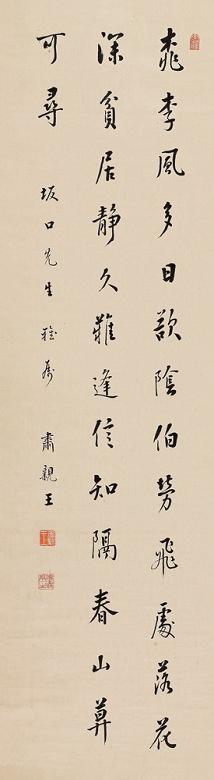 桃李風多日欲陰伯勞飛處落花
深貧居靜久難逢信知隔春山莫
可尋
坂口先生雅属 肅親王